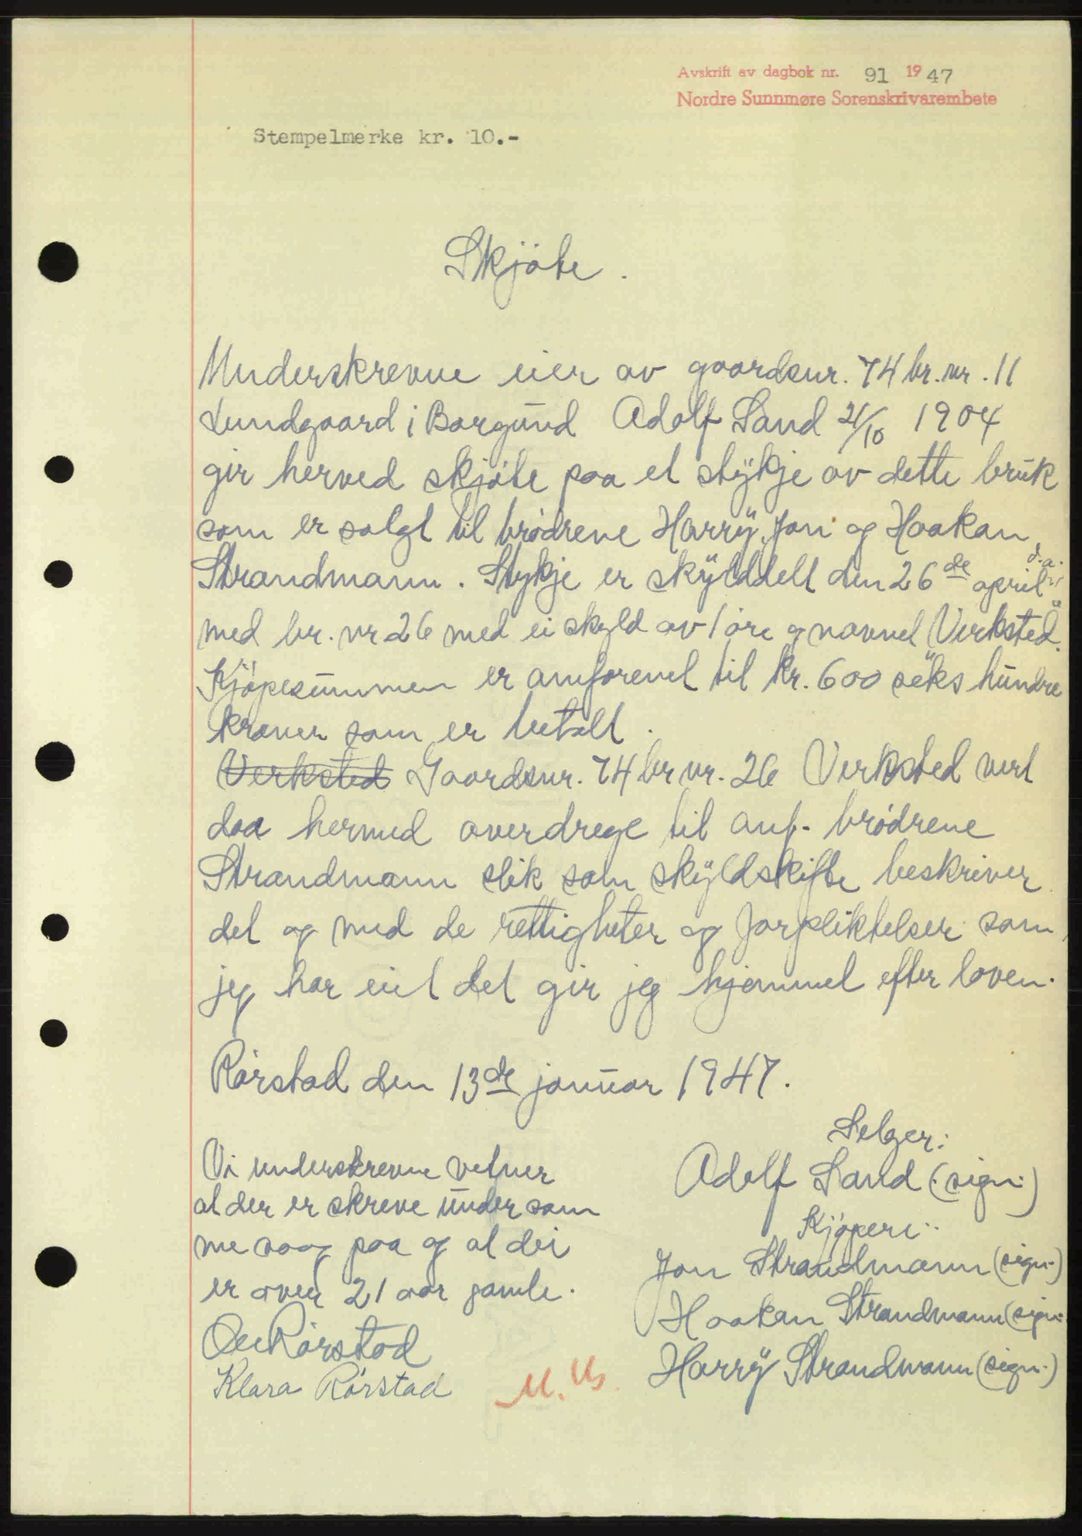 Avskrift av dagbok nr. 91 1947
Nordre Sunnmøre Sorenskrivarembete
Stempelmerke kr. 10.-
Skjøte.
Underskrevne eier av gaardsnr. 74 br. nr. 11
Lundgaard i Borgund Adolf Sand 21/10 1904
gir herved skjøte paa et stykje av dette bruk
som er solgt til brødrene Harry, Jon og Haakan
Strandmann. Stykje er skylddelt den 26de april d.a.
med br. nr 26 med ei skyld av 1 øre og navnet "Verksted".
Kjøpesummen er omforenet til kr. 600 seks hundre
kroner som er betalt.
Verksted Gaardsnr. 74 br nr. 26 Verksted vert
daa hermed overdrege til anf. brødrene
Strandmann slik som skyldskifte beskriver
det og med de rettigheter og forpliktelser som
jeg har eiet det gir jeg hjemmel efter loven.
Rørstad den 13de januar 1947.
Selger:
Adolf Sand (sign.)
Kjøpere:
Jon Strandmann (sign.)
Haakan Strandmann (sign.
Harry Strandmann (sign.)
Vi underskrevne vetner
at der er skreve under som
me saag paa og at dei
er over 21 aar gamle.
Rørstad
Klara Rørstad